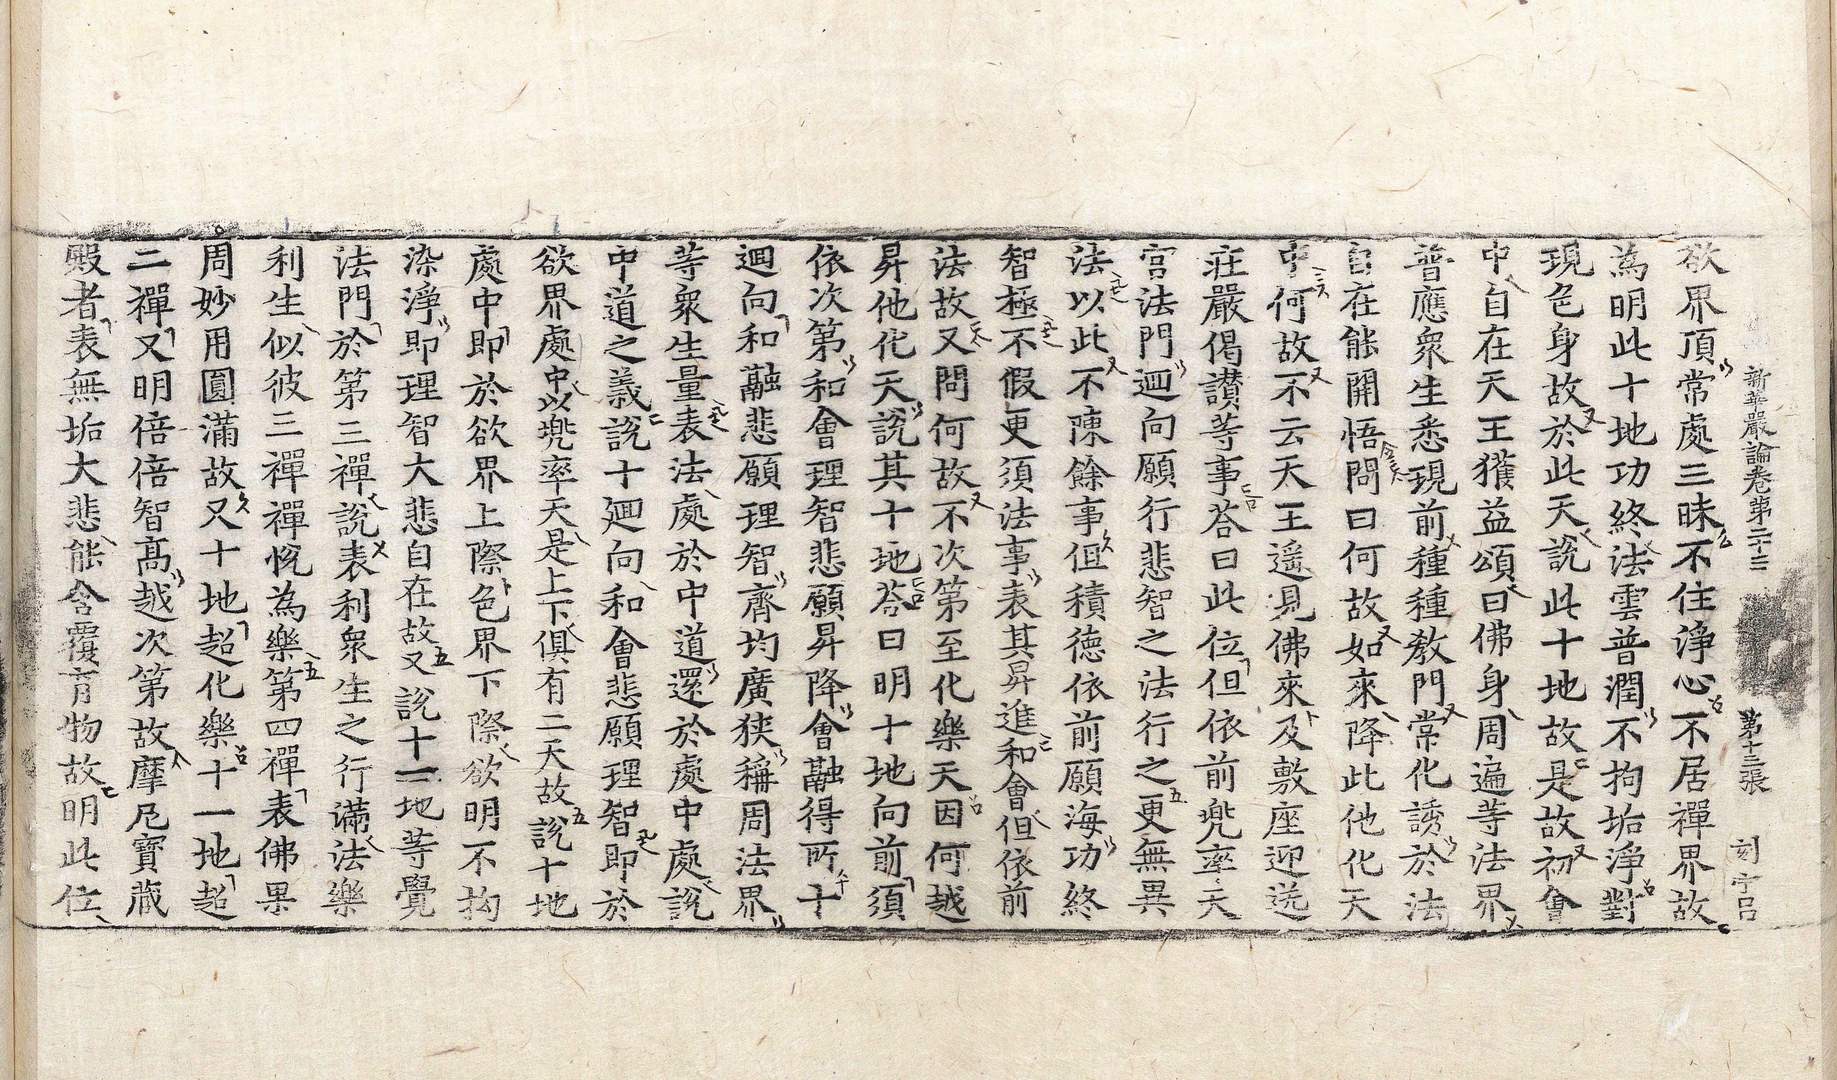 新華嚴論卷第二十三 第十三張 刻字呂
欲界頂常處三昧不住淨心不居禪界故
為明此十地功終法雲普潤不拘垢淨對
現色身故於此天說此十地故是故初會
中自在天王獲益頌曰佛身周遍等法界
普應衆生悉現前種種教門常化誘於法
自在能開悟問曰何故如來降此他化天
中何故不云天王遙見佛來及敷座迎送
莊嚴偈讃等事荅曰此位但依前兜率天
宮法門迴向願行悲智之法行之更無異
法以此不陳餘事但積德依前願海功終
智極不假更須法事表其昇進和會但依前
法故又問何故不次第至化樂天因何越
昇他化天說其十地荅曰明十地向前須
依次第和會理智悲願昇降會融得所十
迴向和融悲願理智齊均廣狹稱周法界
等衆生量表法處於中道還於處中處說
中道之義說十廻向和會悲願理智即於
欲界處中以兜率天是上下俱有二天故說十地
處中即於欲界上際色界下際欲明不拘
染淨即理智大悲自在故又說十一地等覺
法門於第三禪說表利衆生之行滿法樂
利生似彼三禪禪悅為樂第四禪表佛果
周妙用圓滿故又十地超化樂十一地超
二禪又明倍倍智高越次第故摩尼寶藏
殿者表無垢大悲能含覆育物故明此位